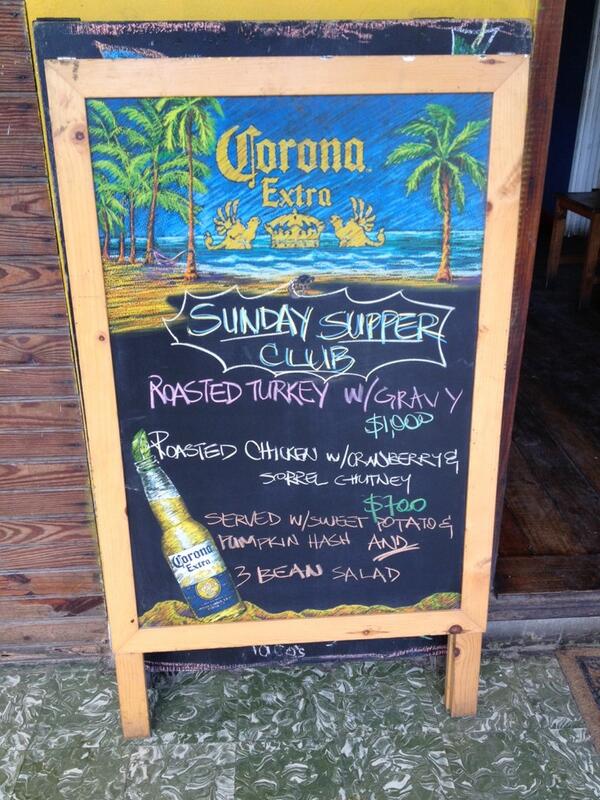 Corona
Extra
SUNDAY SUPPER
CLUB
ROASTED TURKEY W/GRAVY
$1,900
ROASTED CHICKEN W/CRANBERRY &
SORREL CHUTNEY
$700
SERVED W/SWEET POTATO &
PUMPKIN HASH AND
3 BEAN SALAD
Corona
Extra